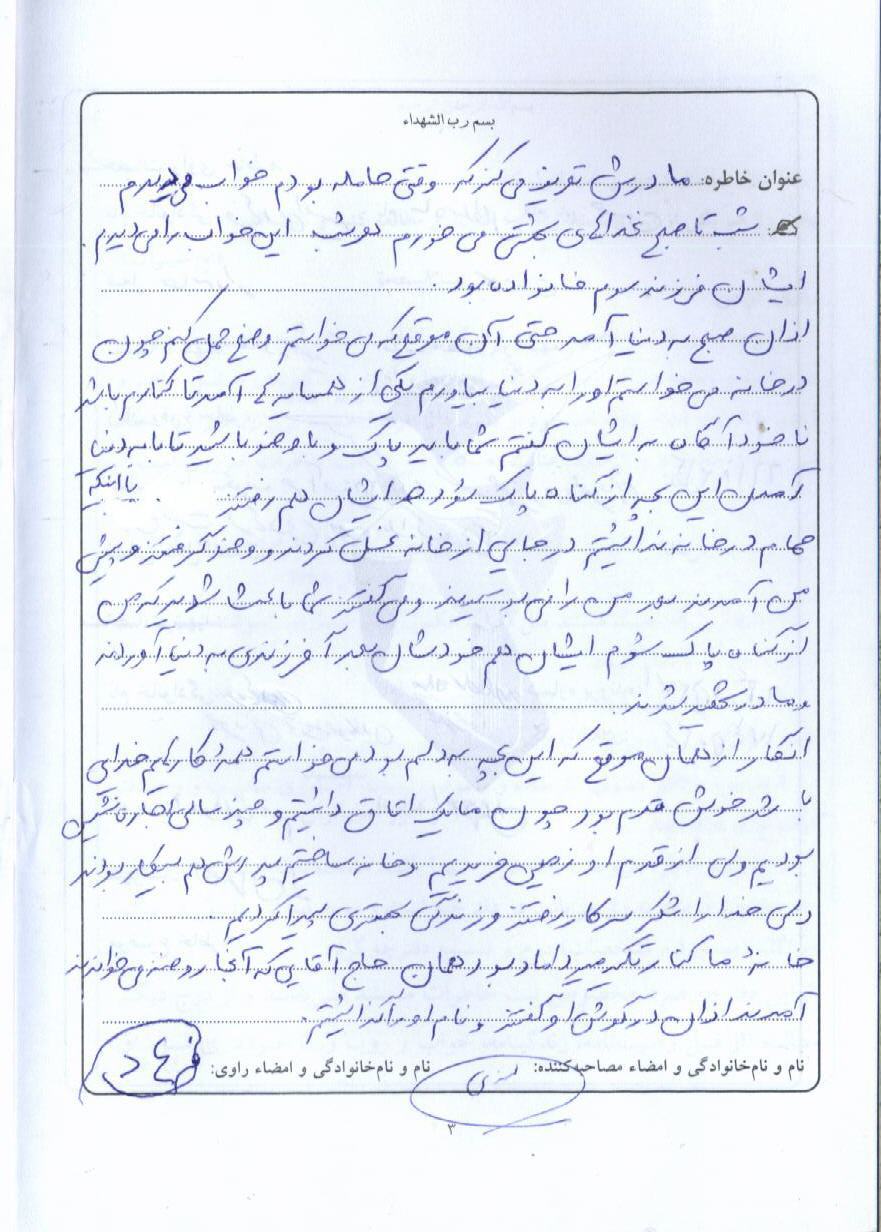 بسم رب الشهداء
عنوان خاطره: مادرش تعریف می‌کرد که وقتی حامله بودم خواب می‌دیدم
شب تا صبح غذاهای بهشتی می خورم هر شب این خواب را می دیدم.
ایشان فرزند سوم خانواده بود.
اذان صبح به دنیا آمد حتی آن موقع که می خواستم وضع حمل کنم چون
در خانه می خواستم او را به دنیا بیاورم یکی از همسایه ها آمد تا کنارم باشد
ناخودآگاه به ایشان گفتم شما باید پاک و با وضو باشید تا با به دنیا
آمدن این بچه از گناه پاک شود ایشان هم رفتند. با اینکه
حمام در خانه نداشتیم در جایی از خانه غسل کردند و وضو گرفتند و پیش
من آمدند بعد من را می بوسیدند و می گفتند شما باعث شدید که من
از گناه پاک شوم ایشان هم خودشان بعداً فرزندی به دنیا آوردند
و مادر شهید شدند.
انگار از همان موقع که این بچه به دلم بود می خواستم همه کارهایم خدایی
باشد خوش قدم بود چون ما یک اتاق داشتیم و چند سالی اجاره نشین
بودیم ولی از قدم او زمین خریدیم و خانه ساختیم پدرش هم بیکار بودند
ولی خدا را شکر سر کار رفتند و زندگی بهتری پیدا کردیم.
خانه ما کنار تکیه میرداماد بود همان حاج آقایی که آنجا روضه می خواندند
آمدند اذان در گوش او گفتند و نام او را گذاشتیم.
نام و نام‌خانوادگی و امضاء مصاحبه‌کننده: نام و نام‌خانوادگی و امضاء راوی: فرهاد
۳